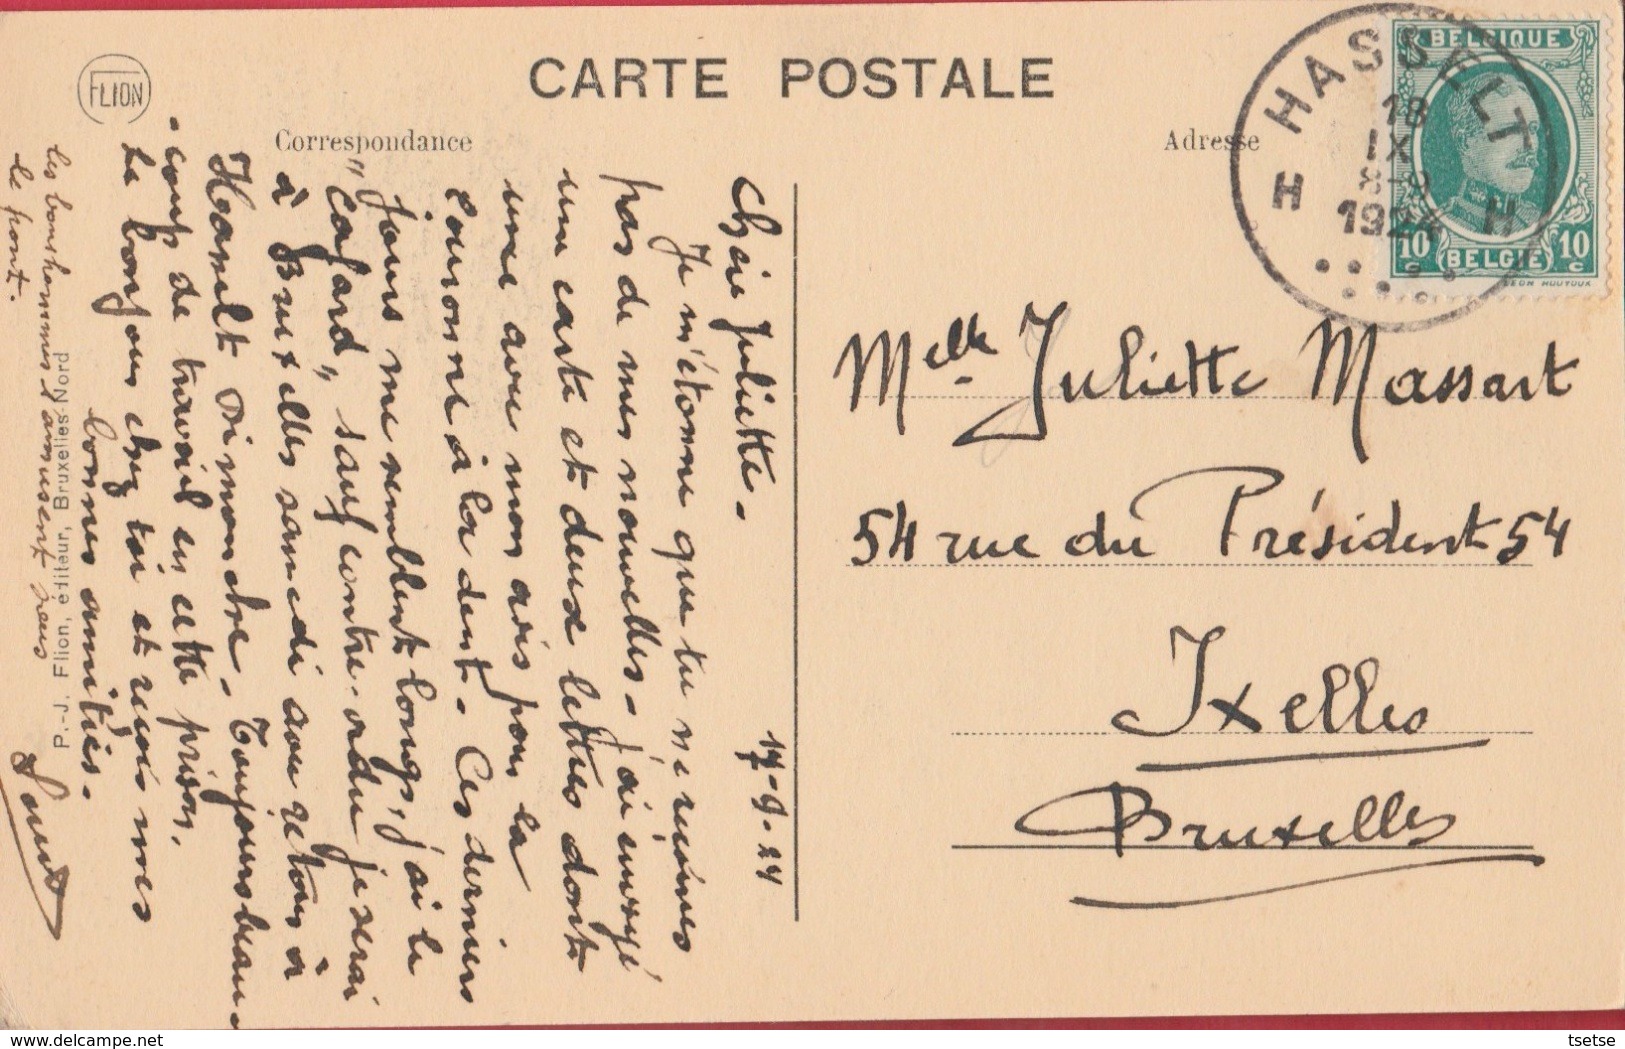 CARTE POSTALE
FLION
Correspondance
Adresse
HASSELT
18
IX
8-9
1924
H H
BELGIQUE
10c 10c
BELGIË
LEON HOUYOUX
17-9-24
Chère Juliette.
Je m'étonne que tu ne reçoives
pas de mes nouvelles. J'ai envoyé
une carte et deux lettres dont
une avec mon avis pour la
couronne à la dent. Ces derniers
jours me semblent longs, j'ai le
"Cafard", sauf contre-ordre je serai
à Bruxelles samedi avec retour à
Hasselt Dimanche. Toujours beau-
coup de travail en cette prison.
Le bonjour chez toi et reçois mes
bonnes amitiés.
les bonshommes s'amusent sous
le pont.
P.-J. Flion, éditeur, Bruxelles-Nord
Melle Juliette Massart
54 rue du Président 54
Ixelles
Bruxelles
tsetse
delcampe.net